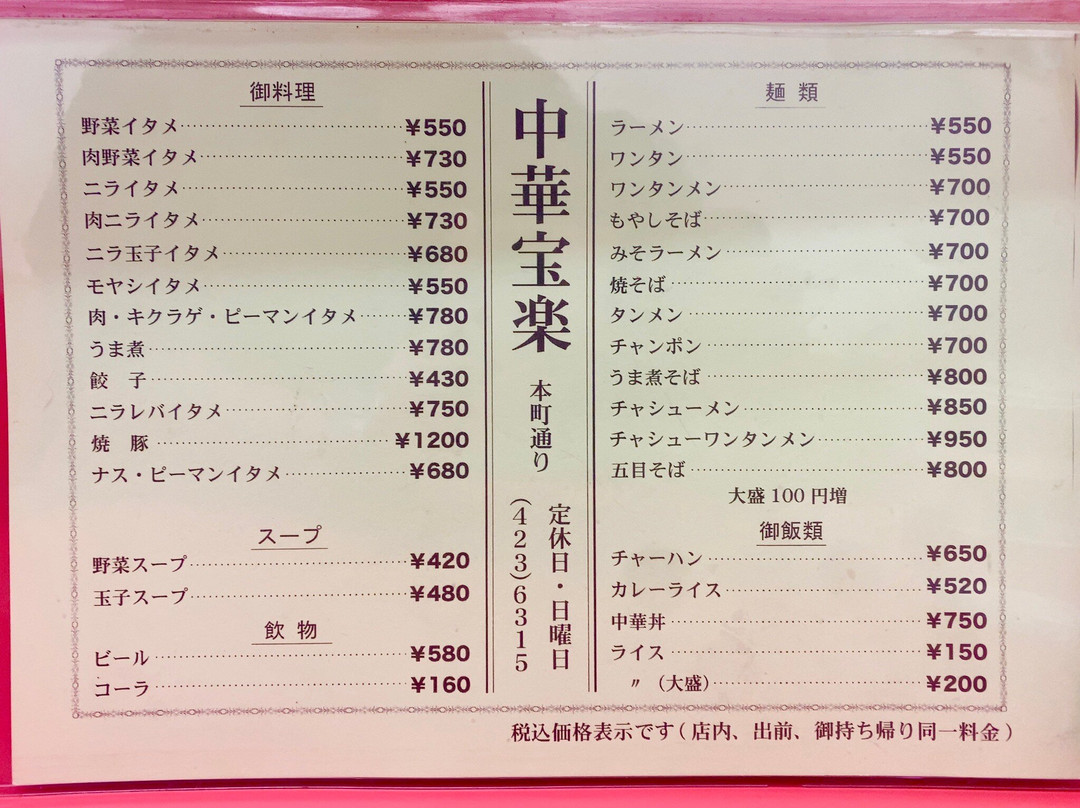 御料理
野菜イタメ ¥550
肉野菜イタメ ¥730
ニライタメ ¥550
肉ニライタメ ¥730
ニラ玉子イタメ ¥680
モヤシイタメ ¥550
肉・キクラゲ・ピーマンイタメ ¥780
うま煮 ¥780
餃 子 ¥430
ニラレバイタメ ¥750
焼 豚 ¥1200
ナス・ピーマンイタメ ¥680
スープ
野菜スープ ¥420
玉子スープ ¥480
飲 物
ビール ¥580
コーラ ¥160
中華宝楽
本町通り
定休日・日曜日
(423)6315
麺 類
ラーメン ¥550
ワンタン ¥550
ワンタンメン ¥700
もやしそば ¥700
みそラーメン ¥700
焼そば ¥700
タンメン ¥700
チャンポン ¥700
うま煮そば ¥800
チャシューメン ¥850
チャシューワンタンメン ¥950
五目そば ¥800
大盛100円増
御飯類
チャーハン ¥650
カレーライス ¥520
中華丼 ¥750
ライス ¥150
〃 (大盛) ¥200
税込価格表示です(店内、出前、御持ち帰り同一料金)